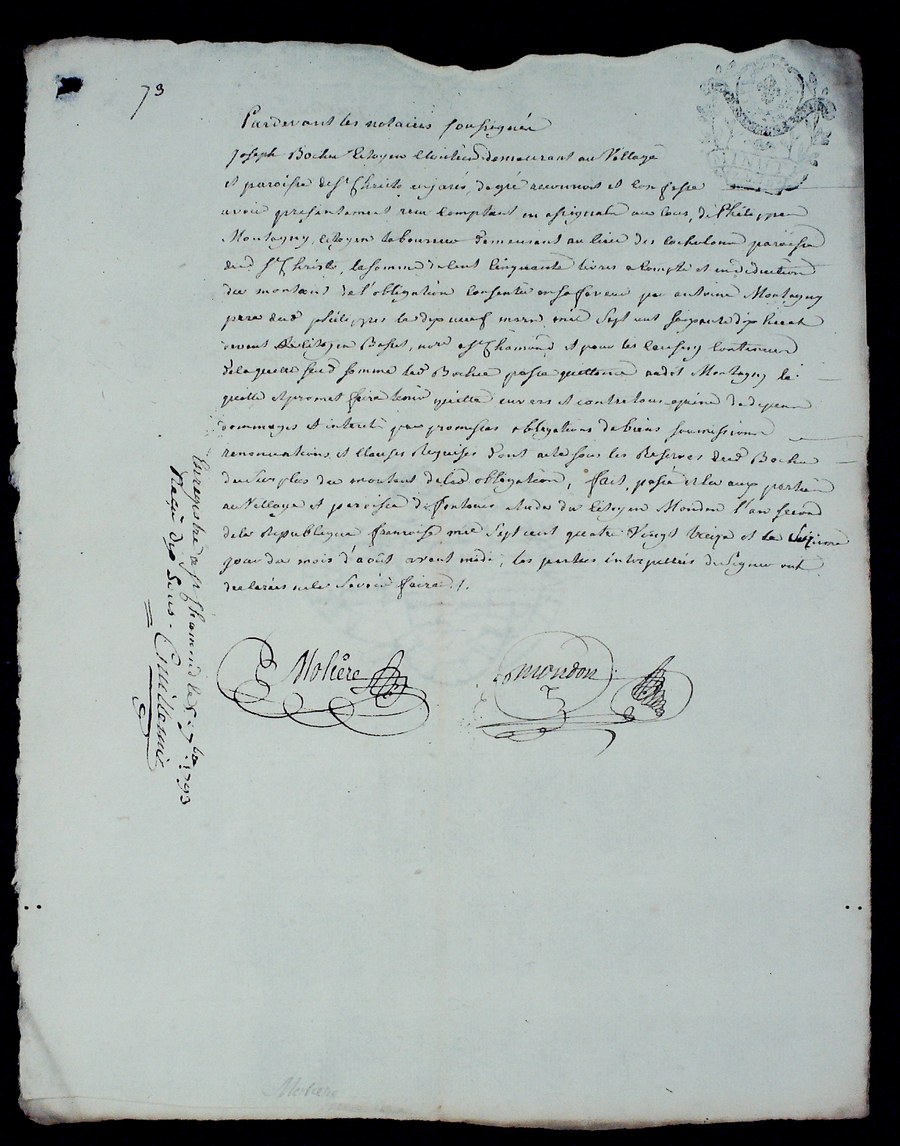 73
Pardevant les notaires soussignés
Joseph Bochu Citoyen Cloutier demeurant au Village
et paroisse de St Christo en jarès de gré reconnoit et confesse
avoir présentement reçu comptant en assignats au cours, de Philippe
Montagny, citoyen laboureur demeurant au lieu des paroisse
dud. St Christo, la somme de Cent Cinquante livres a Compte et en déduction
du montant de l'obligation Consentie en sa faveur par antoine Montagny
pere dud. philippes le dix neuf mars mil sept cent soixante dix huit
devant le Citoyen notre a St Chamond et pour les causes y Contenues
de laquelle susd. somme led. Bochu passe quittance aud. Montagny la
quelle et promet faire tenir quitte envers et contre tous a peine de depens
dommages et interets par promesses obligations de biens soumissions
renonciations et clauses Requises dont acte sous les Reserves dud. Bochu
du surplus du montant de lad. obligation, fait, passé et lu aux parties
au Village et paroisse de fontanes etude du Citoyen Mondon l'an second
de la Republique française mil sept cent quatre Vingt treize et le Seizieme
jour du mois d'août avant midi, les parties interpellées de signer ont
declarées ne le Savoir faire ./.
Molière
mondon
Enregistré a St Chamond le 5. 7bre 1793
Reçu dix Sous.
Molière